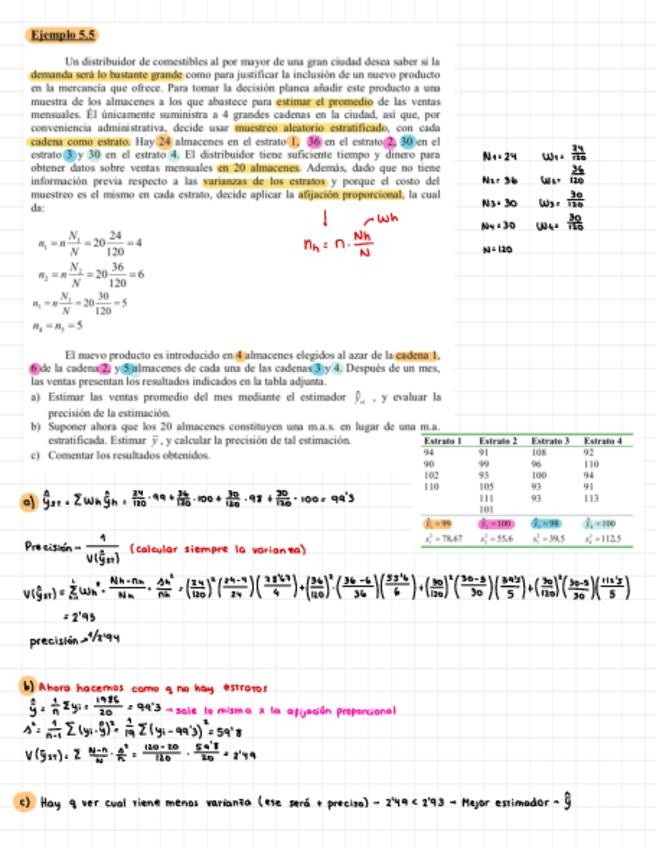 Ejemplo 5.5
Un distribuidor de comestibles al por mayor de una gran ciudad desea saber si la
demanda será lo bastante grande como para justificar la inclusión de un nuevo producto
en la mercancía que ofrece. Para tomar la decisión planea añadir este producto a una
muestra de los almacenes a los que abastece para estimar el promedio de las ventas
mensuales. Él únicamente suministra a 4 grandes cadenas en la ciudad, así que, por
conveniencia administrativa, decide usar muestreo aleatorio estratificado, con cada
cadena como estrato. Hay 24 almacenes en el estrato 1, 36 en el estrato 2, 30 en el
estrato 3 y 30 en el estrato 4. El distribuidor tiene suficiente tiempo y dinero para
obtener datos sobre ventas mensuales en 20 almacenes. Además, dado que no tiene
información previa respecto a las varianzas de los estratos y porque el costo del
muestreo es el mismo en cada estrato, decide aplicar la afijación proporcional, la cual
da:
N1=24 W1= 24/120
N2=36 W2= 36/120
N3=30 W3= 30/120
N4=30 W4= 30/120
N=120
↓ Wh
nh = n · Nh/N
n₁ = n N₁/N = 20 24/120 = 4
n₂ = n N₂/N = 20 36/120 = 6
n₃ = n N₃/N = 20 30/120 = 5
n₄ = n₃ = 5
El nuevo producto es introducido en 4 almacenes elegidos al azar de la cadena 1,
6 de la cadena 2, y 5 almacenes de cada una de las cadenas 3 y 4. Después de un mes,
las ventas presentan los resultados indicados en la tabla adjunta.
a) Estimar las ventas promedio del mes mediante el estimador ŷst, y evaluar la
precisión de la estimación.
b) Suponer ahora que los 20 almacenes constituyen una m.a.s. en lugar de una m.a.
estratificada. Estimar ȳ, y calcular la precisión de tal estimación.
c) Comentar los resultados obtenidos.
Estrato 1 Estrato 2 Estrato 3 Estrato 4
94 91 108 92
90 99 96 110
102 93 100 94
110 105 93 91
111 93 113
101
ŷ₁=99 ŷ₂=100 ŷ₃=98 ŷ₄=100
s₁²=78,67 s₂²=55,6 s₃²=39,5 s₄²=112,5
a) ŷST = ΣWh ŷh = 24/120 · 99 + 36/120 · 100 + 30/120 · 98 + 30/120 · 100 = 99'3
Precisión = 1/V(ŷST) (calcular siempre la varianza)
V(ŷST) = ΣWh² · Nh-nh/Nh · sh²/nh = (24/120)²(24-4/24)(78'67/4) + (36/120)² · (36-6/36)(55'6/6) + (30/120)²(30-5/30)(39'5/5) + (30/120)²(30-5/30)(112'5/5)
= 2'93
precisión → 1/2'94
b) Ahora hacemos como q no hay estratos
ŷ = 1/n Σyi = 1986/20 = 99'3 → sale lo mismo x la afijación proporcional
s² = 1/n-1 Σ(yi-ŷ)² = 1/19 Σ(yi-99'3)² = 59'8
V(ŷST) = Σ N-n/N · s²/n = 120-20/120 · 59'8/20 = 2'49
c) Hay q ver cual tiene menos varianza (ese será + preciso) → 2'49 < 2'93 → Mejor estimador → ŷ